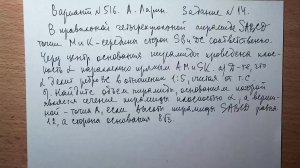 Вариант №516. А. Ларин. Задание №14.
В правильной четырехугольной пирамиде SABCD
точки M и K - середины сторон SB и DC соответственно.
Через центр основания пирамиды проведена плос-
кость α параллельно прямым AM и SK.
делит ребро в отношении 1:5, считая от т. C.
Найдите объем пирамиды, основанием которой
является сечение пирамиды плоскостью α, а верши-
ной - точка A, если высота пирамиды SABCD равна
12, а сторона основания 8√3.